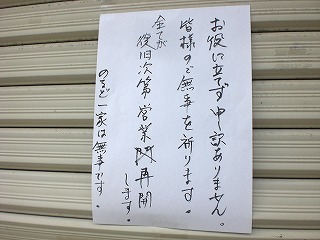 お役に立てず申訳ありません。
皆様のご無事を祈ります。
全てが
復旧次第営業再開
します。
一家は無事です。